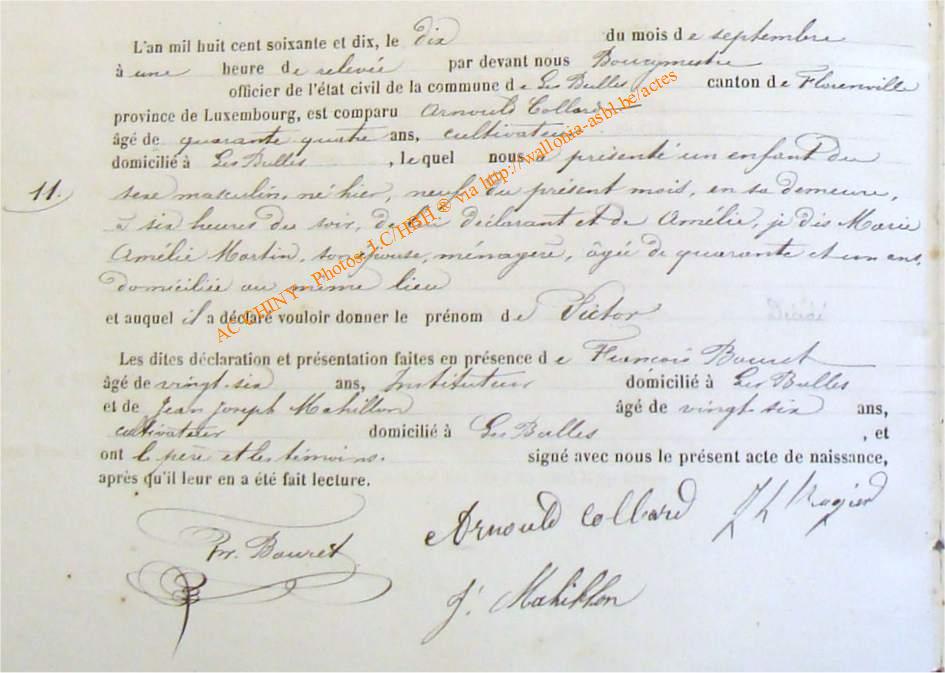 L'an mil huit cent soixante et dix, le dix du mois de septembre
à une heure de relevée par devant nous Bourgmestre
officier de l'état civil de la commune de Les Bulles canton de Florenville
province de Luxembourg, est comparu Arnould Collard
âgé de quarante quatre ans, cultivateur
domicilié à Les Bulles, lequel nous a présenté un enfant du
11. sexe masculin, né hier, neuf du présent mois, en sa demeure,
à six heures du soir, de lui déclarant et de Amélie, je dis Marie
Amélie Martin, son épouse, ménagère, âgée de quarante et un ans,
domiciliée au même lieu
et auquel il a déclaré vouloir donner le prénom de Victor
Décédé
Les dites déclaration et présentation faites en présence de François Bouret
âgé de vingt-six ans, Instituteur domicilié à Les Bulles
et de Jean Joseph Mahillon âgé de vingt-six ans,
cultivateur domicilié à Les Bulles, et
ont le père et les témoins. signé avec nous le présent acte de naissance,
après qu'il leur en a été fait lecture.
Arnould Collard
Fr. Bouret
J. Mahillon
AC CHINY - Photos J.C/HBH ® via http://wallonia-asbl.be/actes